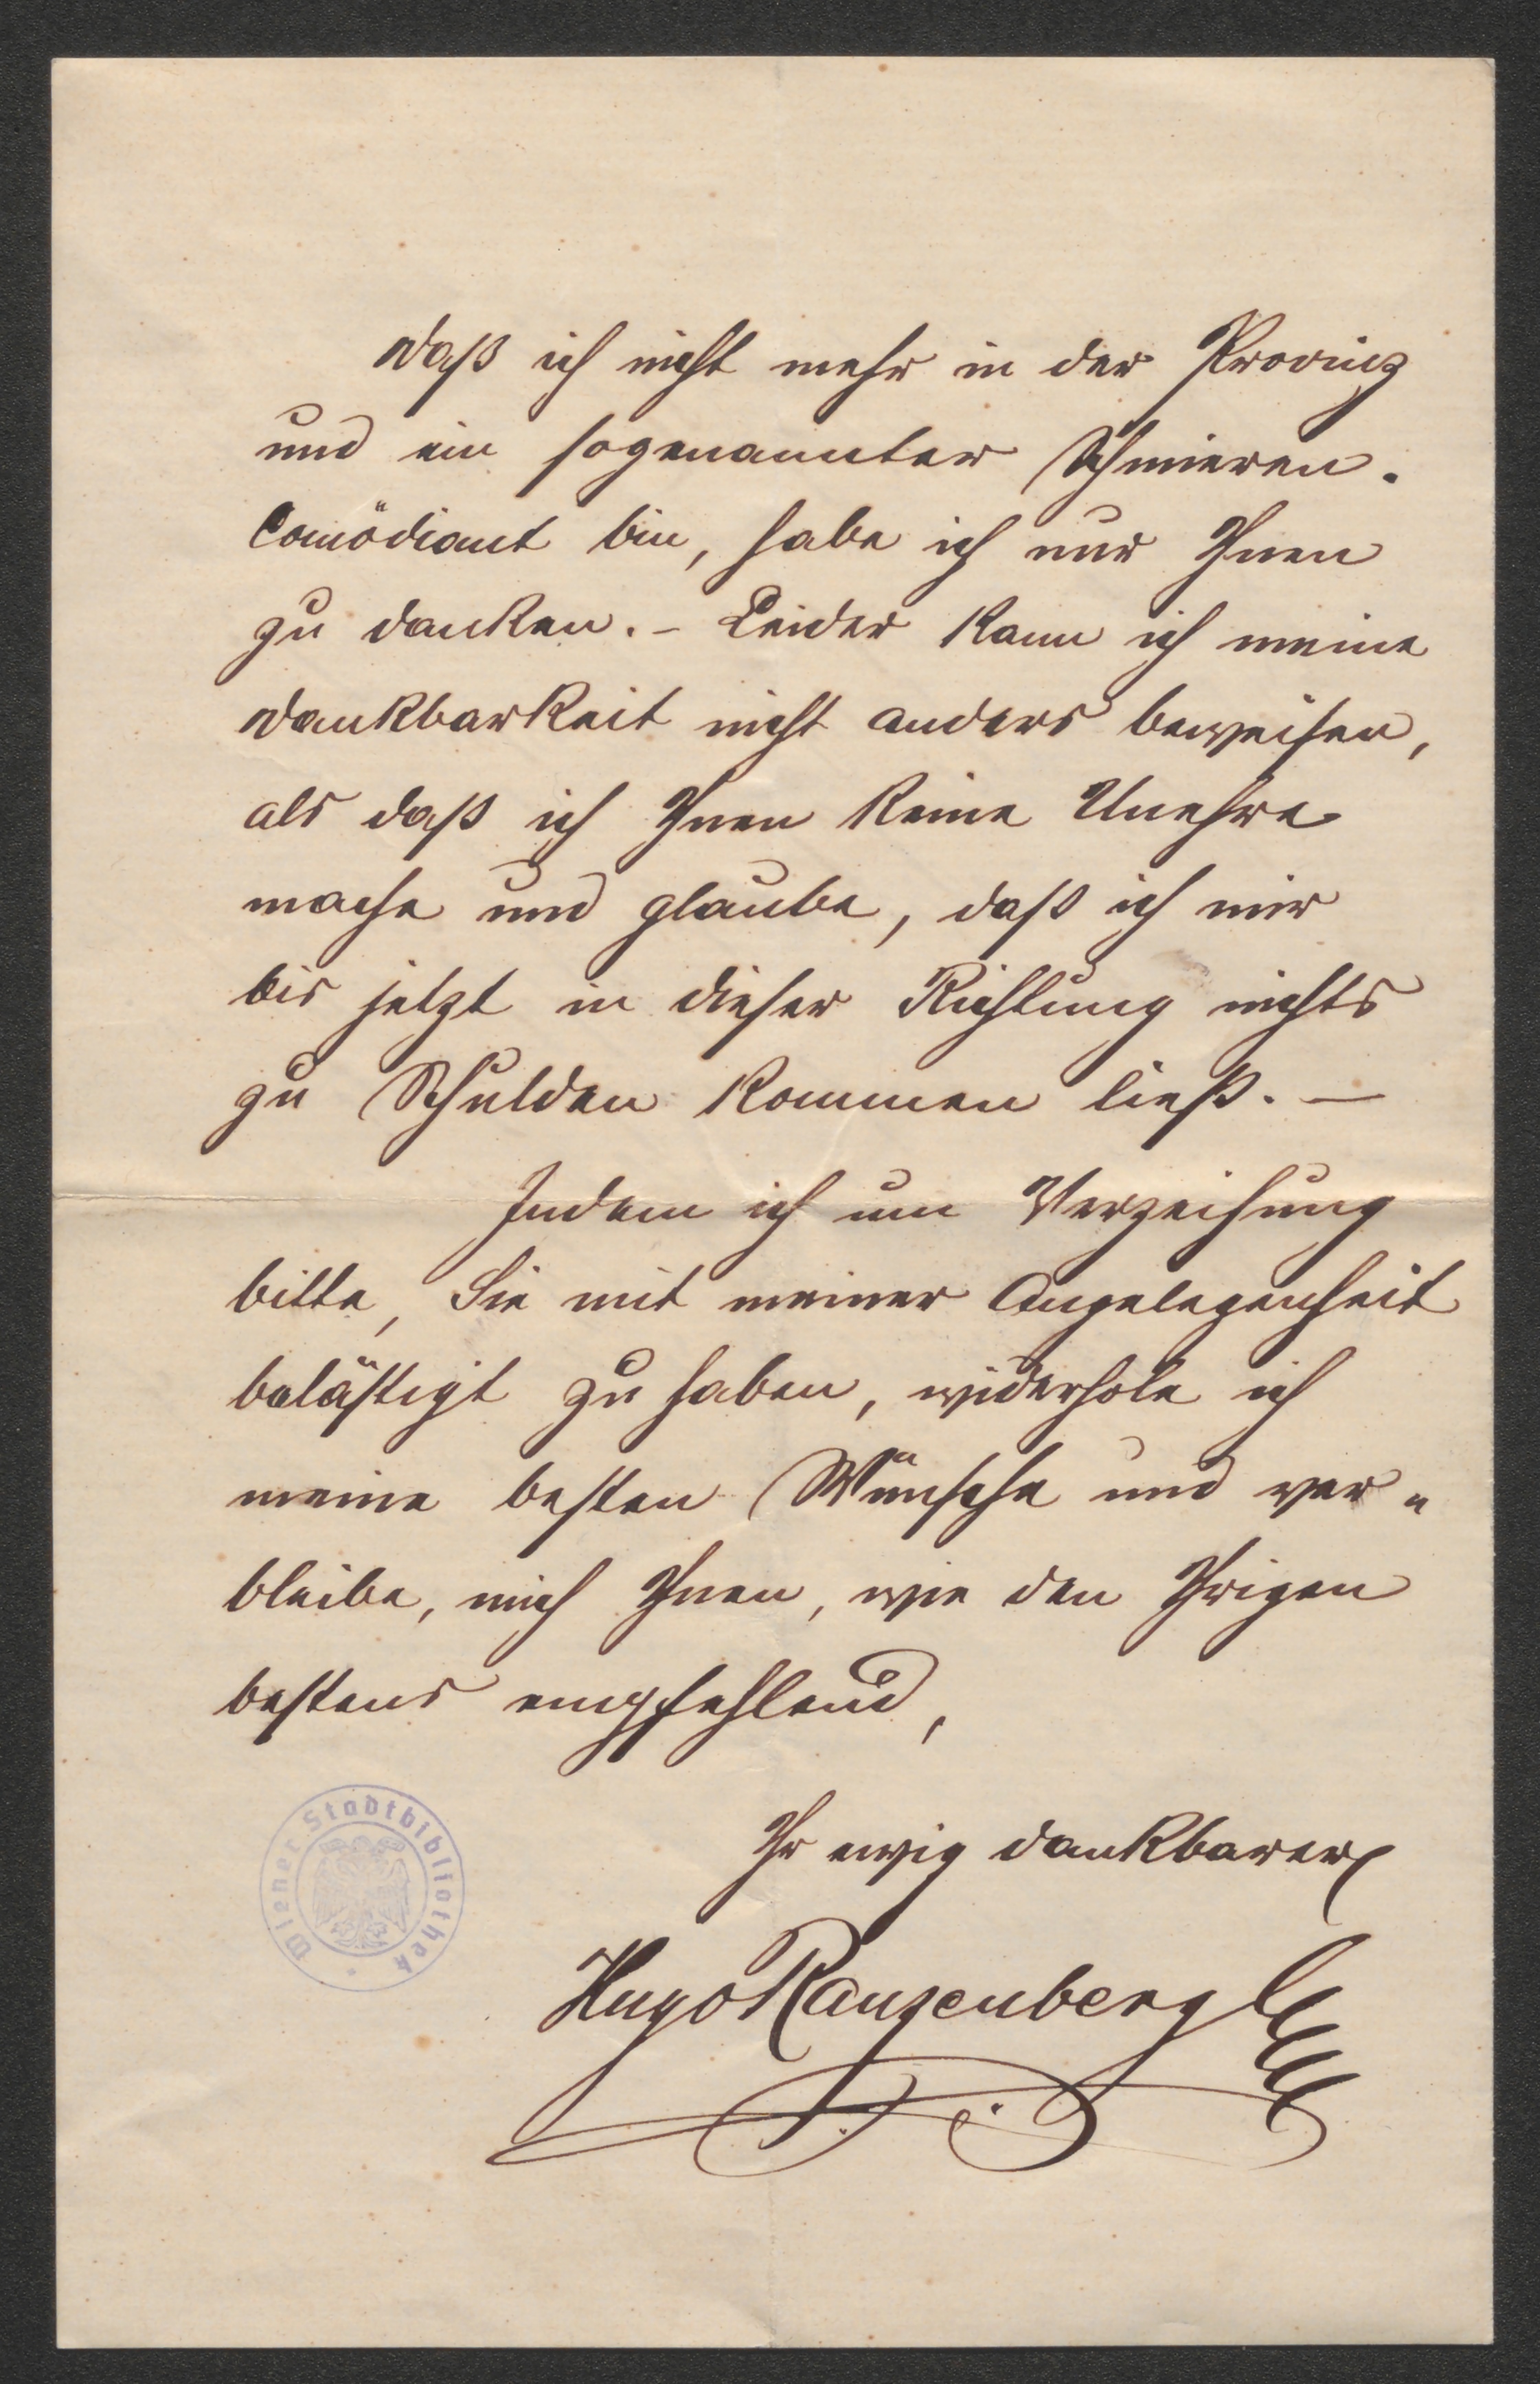 Daß ich nicht mehr in der Provinz
und ein sogenannter Schmieren-
Comödiant bin, habe ich nur Ihnen
zu danken. - Leider kann ich meine
Dankbarkeit nicht anders beweisen,
als daß ich Ihnen keine Unehre
mache und glaube, daß ich mir
bis jetzt in dieser Richtung nichts
zu Schulden kommen ließ. —
Indem ich um Verzeihung
bitte, Sie mit meiner Angelegenheit
belästigt zu haben, widerhole ich
meine besten Wünsche und ver-
bleibe, mich Ihnen, wie den Ihrigen
bestens empfehlend,
Ihr ewig dankbarer
Hugo Ranzenberg
Wiener Stadtbibliothek